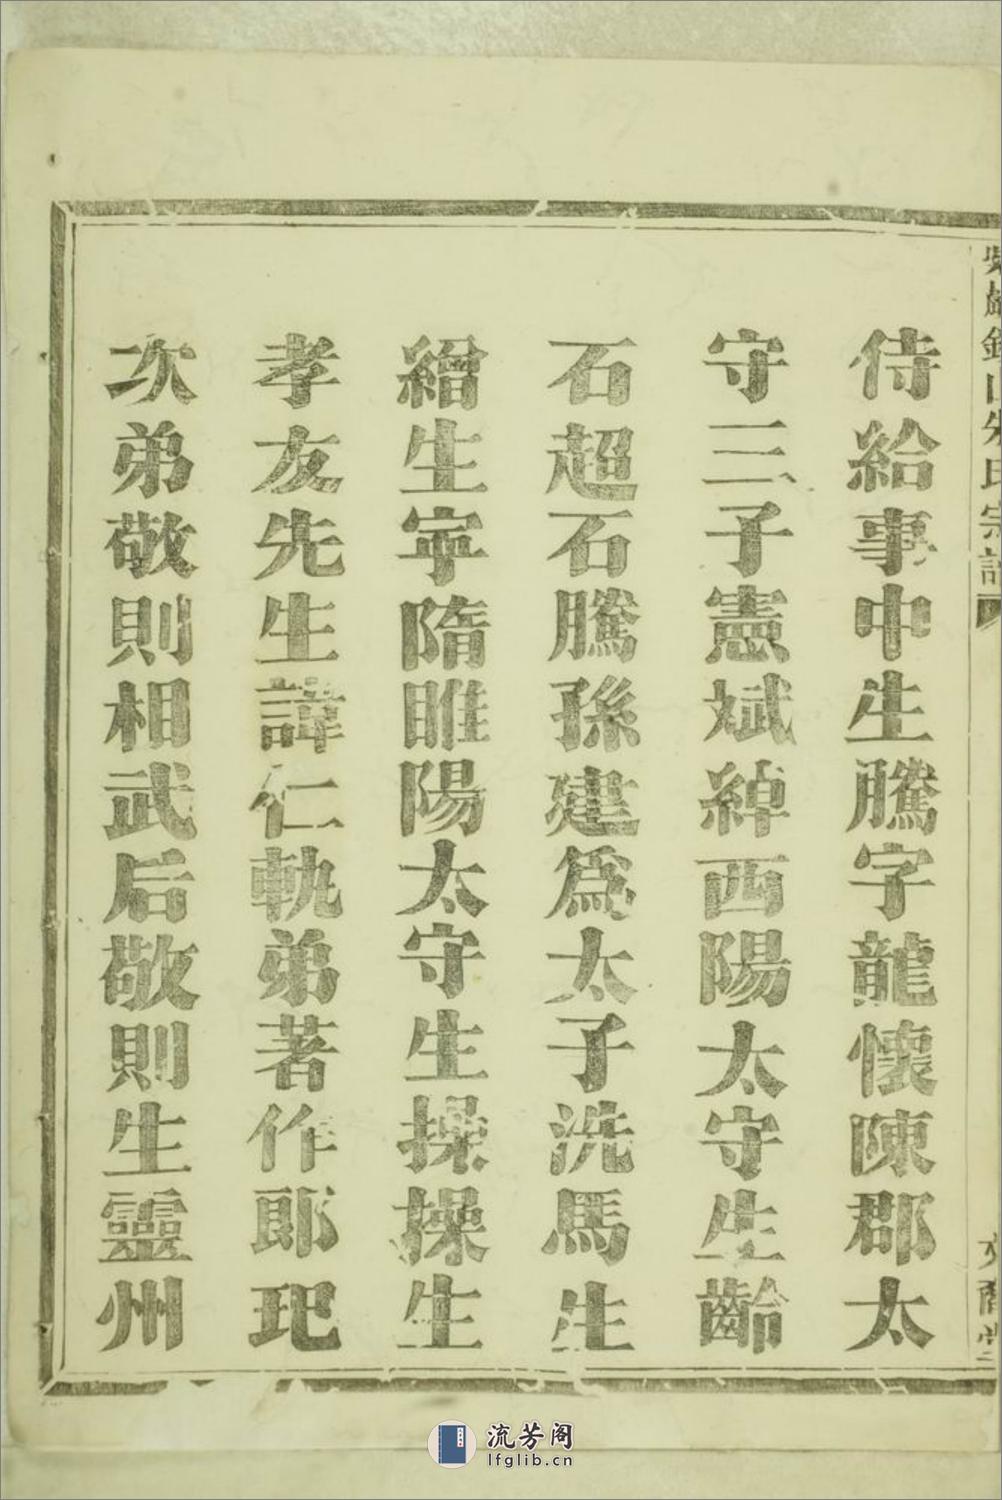 侍給事中生騰字龍懷陳郡太
守三子憲斌綽西陽太守生齡
石超石騰孫建為太子洗馬生
繒生寜隋睢陽太守生操操生
孝友先生諱仁軌弟著作郎玘
次弟敬則相武后敬則生靈州
山朱氏宗譜
流芳阁
lfglib.cn